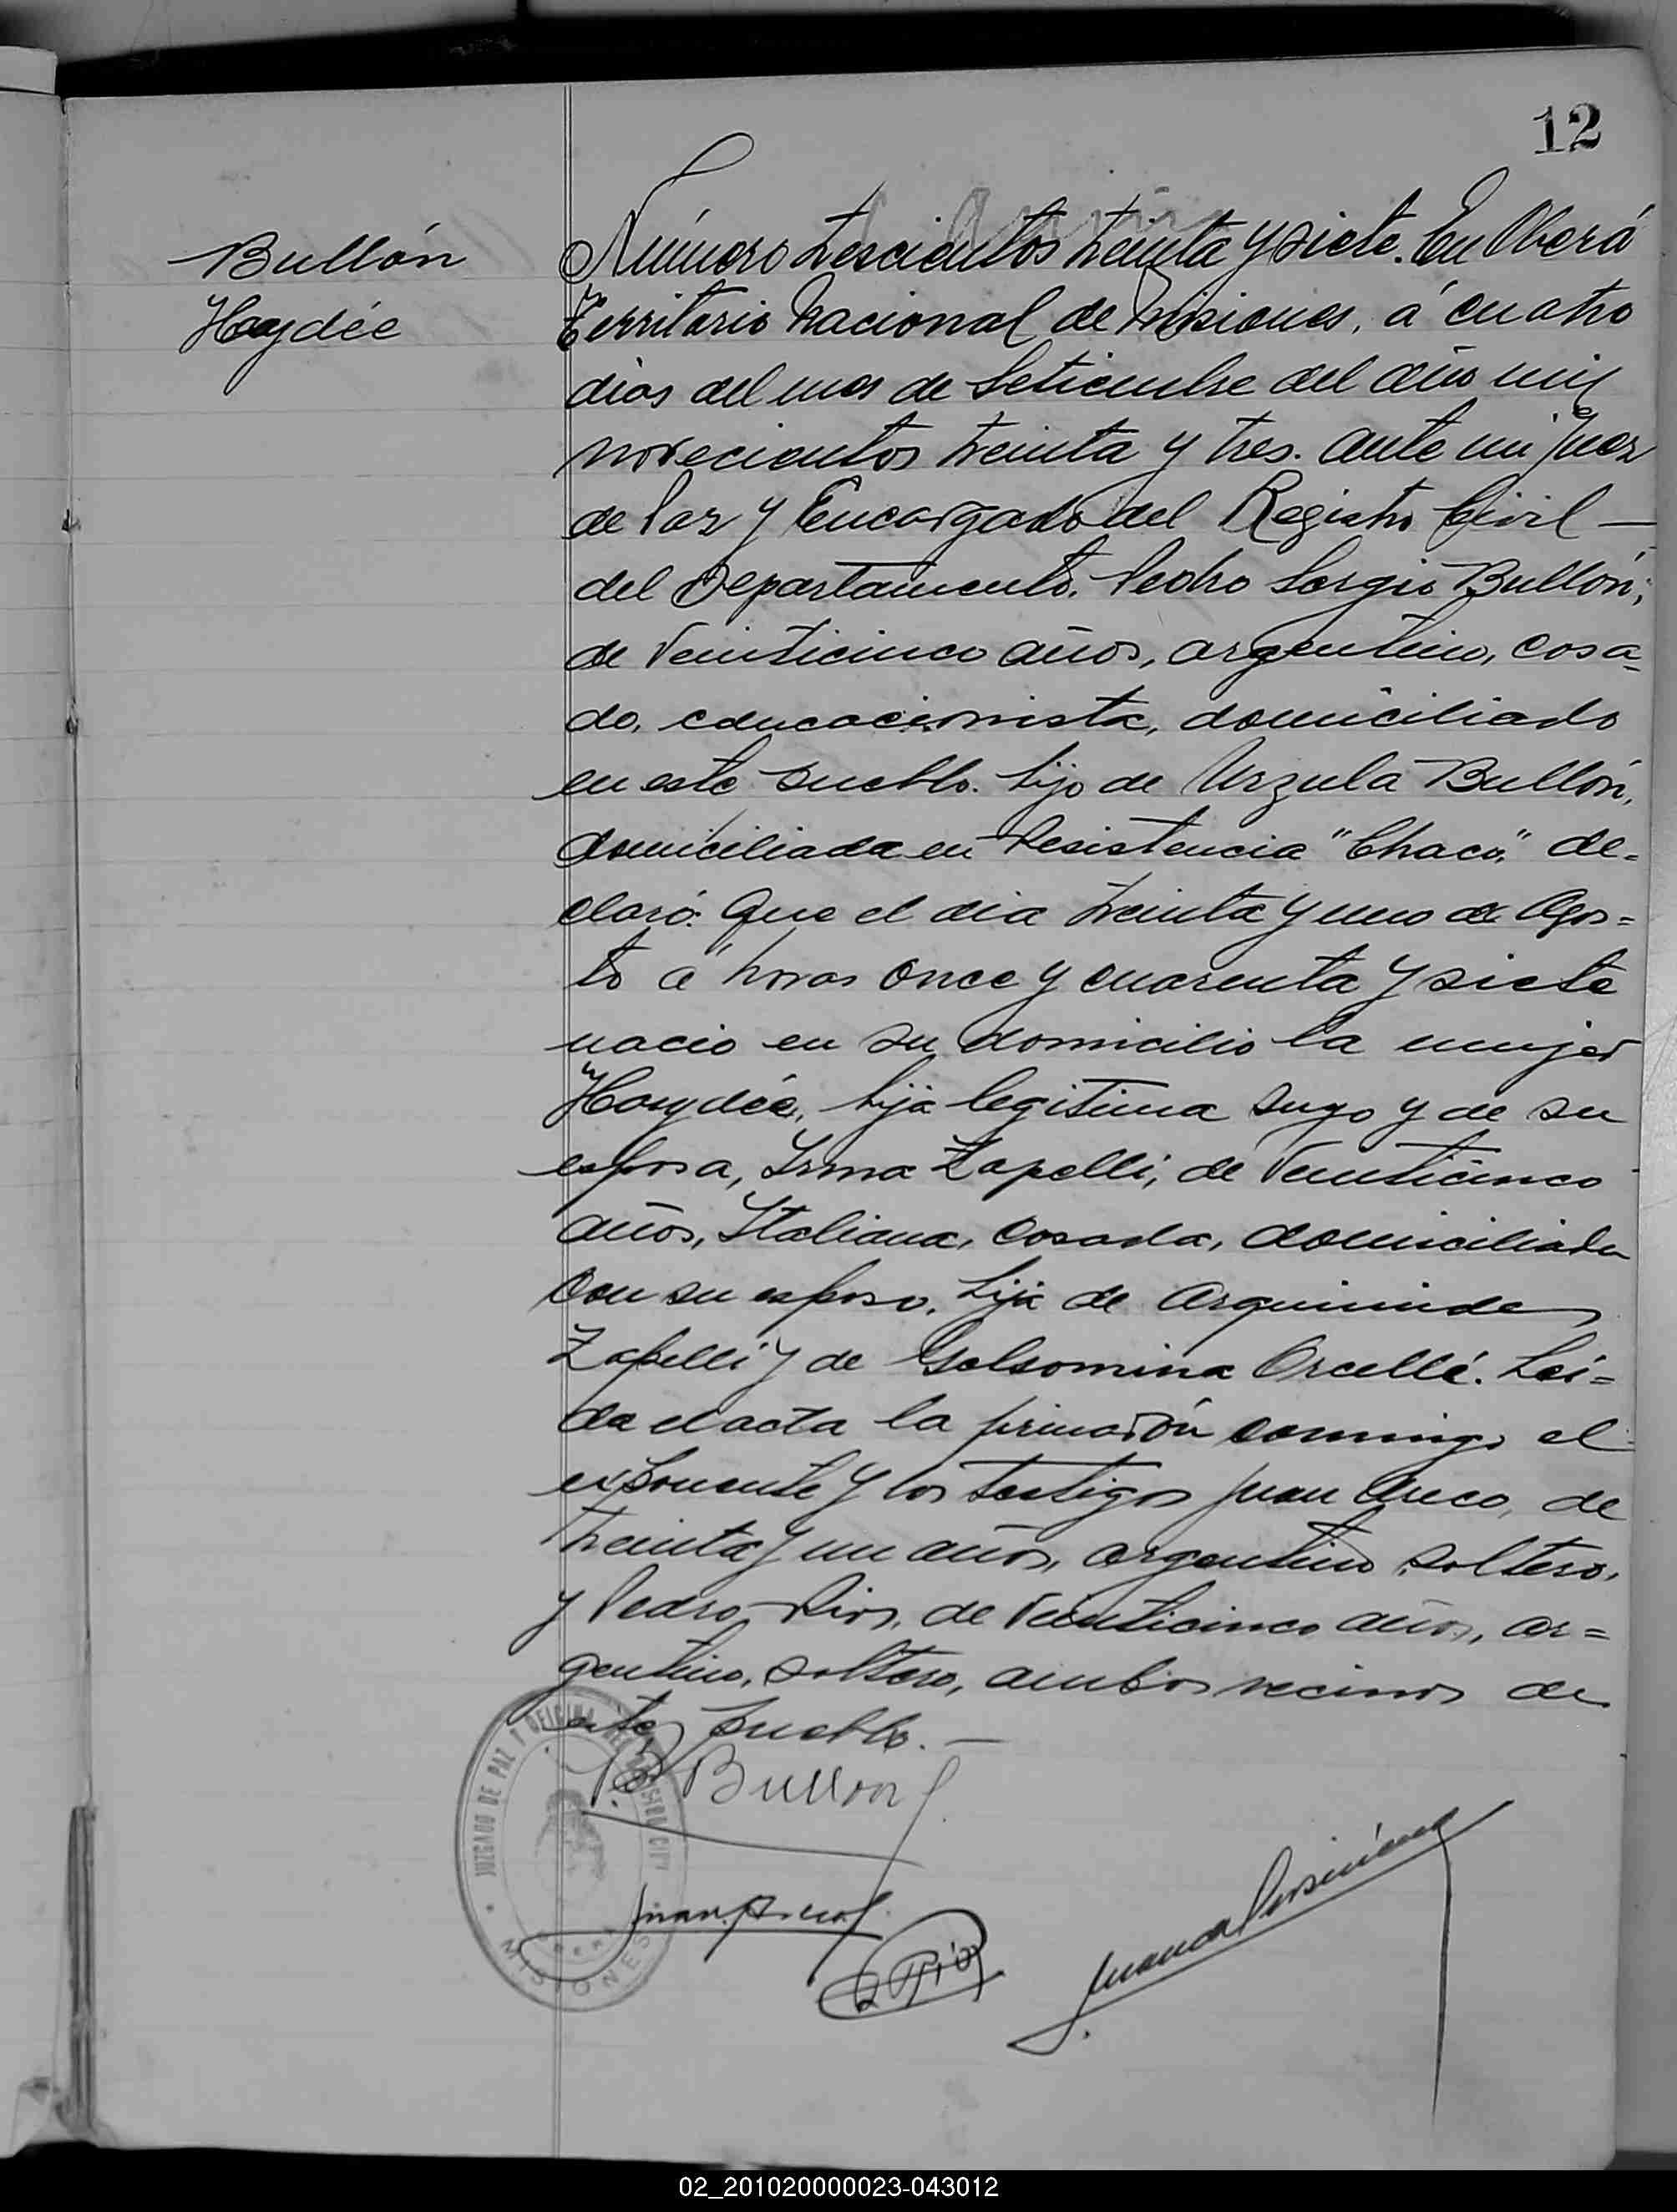 12
Bullón
Haydée
Número trescientos treinta y siete. En Oberá
Territorio Nacional de Misiones, á cuatro
dias del mes de Setiembre del año mil
novecientos treinta y tres. ante mi Juez
de Paz y Encargado del Registro Civil —
del Departamento. Pedro Sergio Bullón,
de Veinticinco años, argentino, casa-
do, educacionista, domiciliado
en este pueblo. hijo de Urzula Bullón,
domiciliada en Resistencia "Chaco," de=
claró: Que el dia treinta y uno de Agos=
to a horas once y cuarenta y siete
nacio en su domicilio la mujer
Haydée, hija legitima suya y de su
esposa, Irma Zapelli, de Veinticinco
años, Italiana, casada, domiciliada
con su esposo. hija de Arquimides
Zapelli y de Gelsomina Orcellé. Lei=
da el acta la firmarón conmigo el
exponente y los testigos Juan Areco, de
treinta y un años, argentino, soltero,
y Pedro Rios, de Veinticinco años, ar=
gentino, soltero, ambos vecinos de
este pueblo. —
Bullon
JUZGADO DE PAZ Y OFICINA DEL REGISTRO CIVIL
MISIONES
02_201020000023-043012